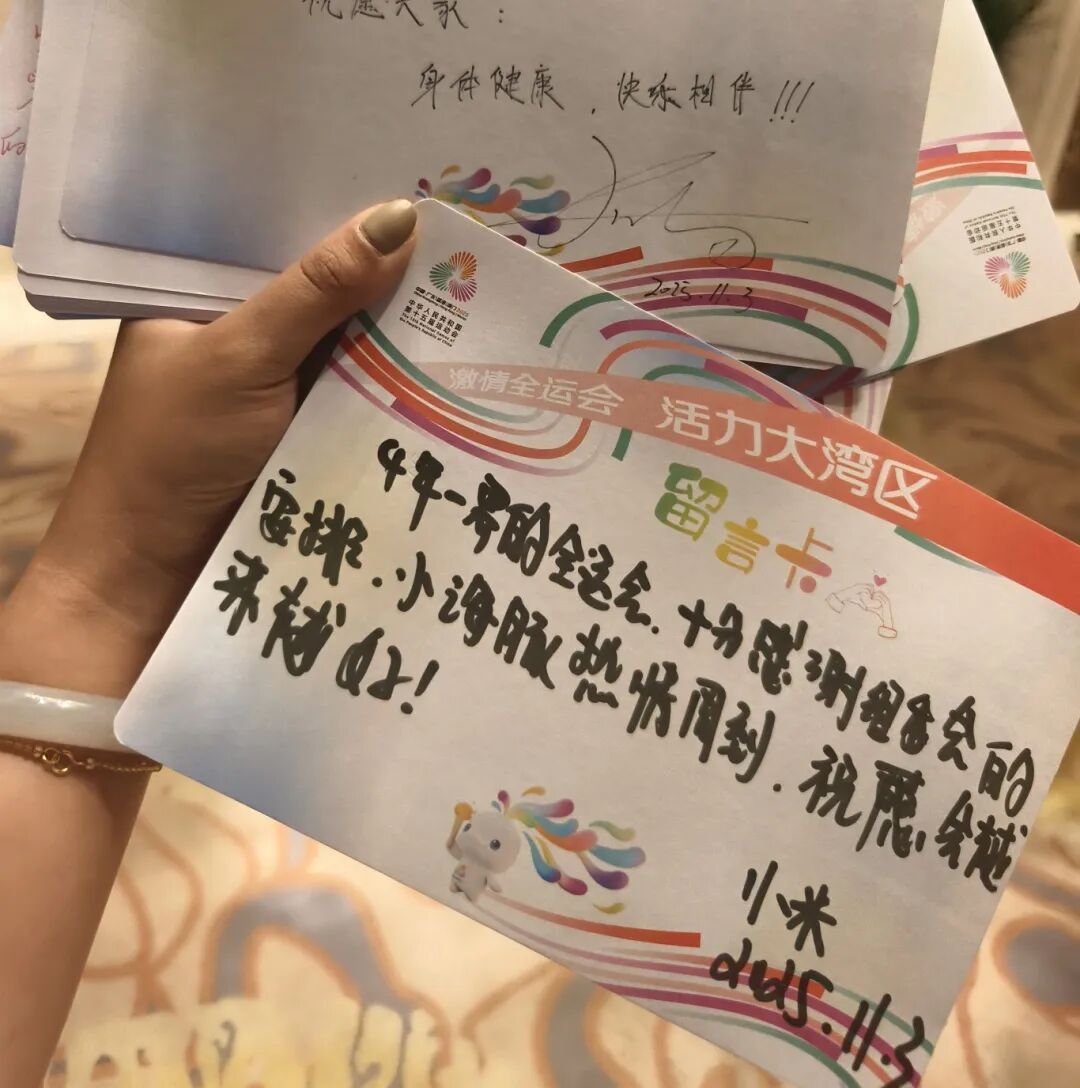 祝愿大家：
身体健康，快乐相伴!!!
2025.11.3
中华人民共和国
第十五届运动会
激情全运会 活力大湾区
留言卡
4年一界的全运会.十分感谢组委会的
安排.小海豚热情周到.祝愿会越
来越好!
小米
2025.11.3
中华人民共和国
第十五届运动会